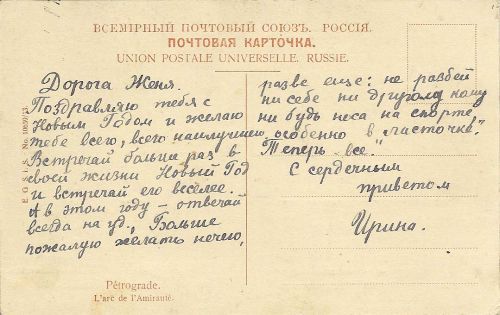 ВСЕМІРНЫЙ ПОЧТОВЫЙ СОЮЗЪ. РОССІЯ.
ПОЧТОВАЯ КАРТОЧКА.
UNION POSTALE UNIVERSELLE. RUSSIE.
Дорога Женя.
Поздравляю тебя с
Новым Годом и желаю
тебе всего, всего наилучшего.
Встречай больши раз в
своей жизни Новый Год
и встречай его веселее.
А в этом году – отвечай
всегда на уд., Больше
пожалую желать нечего,
разве еще: не разбей
ни себе ни другому кому
ни будь носа на спорте,
особенно в "ласточке".
Теперь все."
С сердечным
приветом
Ирина.
E. G. S. I. S. No.
Pétrograde.
L'arc de l'Amirauté.